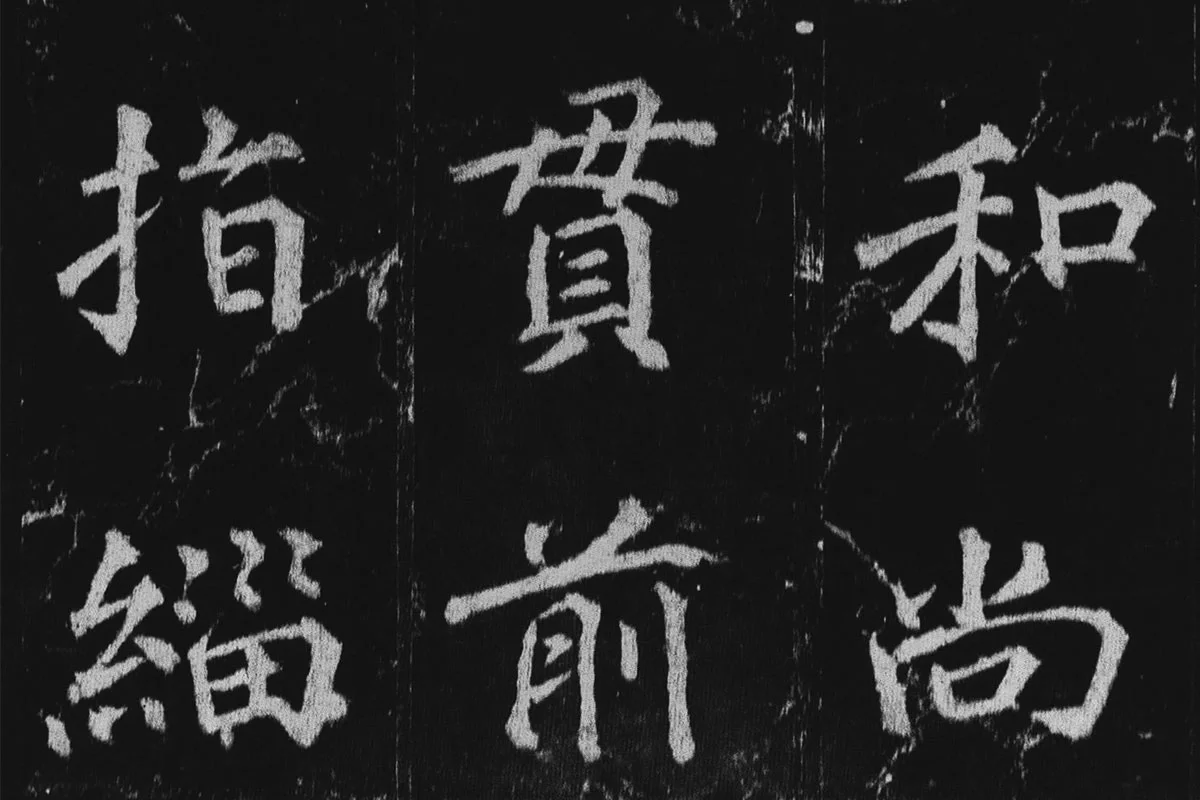 和尚
貫前
指緇